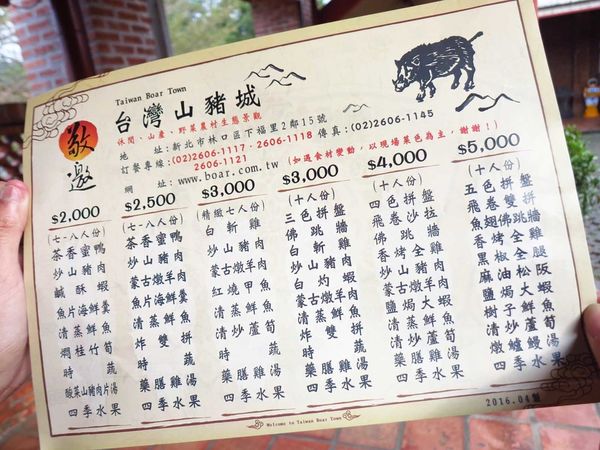 Taiwan Boar Town
台灣山豬城
休閒、山產、野菜農村生態景觀
地 址:新北市林口區下福里2鄰15號
訂餐專線:(02)2606-1117、2606-1118 傳真:(02)2606-1145
2606-1121
網 址:www.boar.com.tw
(如遇食材變動,以現場菜色為主,謝謝!)
敬邀
$2,000
(七-八人份)
茶香蜜鴨
炒山豬肉
鹹酥蝦
魚片海鮮羹
清蒸鮮魚
燜桂竹筍
時蔬
酸菜山豬肉片湯
四季水果
$2,500
(七-八人份)
茶香蜜鴨
炒山豬肉
蒙古燉羊肉
魚片海鮮羹
清蒸鮮魚
炸雙拼
時蔬
藥膳雞湯
四季水果
$3,000
(精緻七人份)
白斬雞
炒山豬肉
蒙古燉羊肉
紅燒甲魚
清蒸鮮魚
清炒蘆筍
時蔬
藥膳雞湯
四季水果
$3,000
(十人份)
三色拼盤
佛跳牆
白斬雞
炒山豬肉
蒙古燉羊肉
白灼蝦
清蒸鮮魚
時蔬
藥膳雞湯
四季水果
$4,000
(十人份)
四色拼盤
飛卷沙拉
佛跳牆
香烤全雞
炒山豬肉
蒙古燉羊肉
鹽焗大蝦
清蒸鮮魚
清炒蘆筍
藥膳雞湯
四季水果
$5,000
(十人份)
五色拼盤
飛卷雙拼
魚翅佛跳牆
香烤全雞
黑椒全腿
麻油松阪
鹽焗大蝦
樹子鮮魚
清炒蘆筍
燉鱸鰻湯
四季水果
Welcome to Taiwan Boar Town
2016.04製